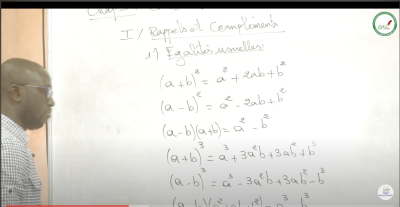 I°/ Rappels et Compléments
1°/ Egalités usuelles:
(a+b)² = a² + 2ab + b²
(a-b)² = a² - 2ab + b²
(a-b)(a+b) = a² - b²
(a+b)³ = a³ + 3a²b + 3ab² + b³
(a-b)³ = a³ - 3a²b + 3ab² - b³